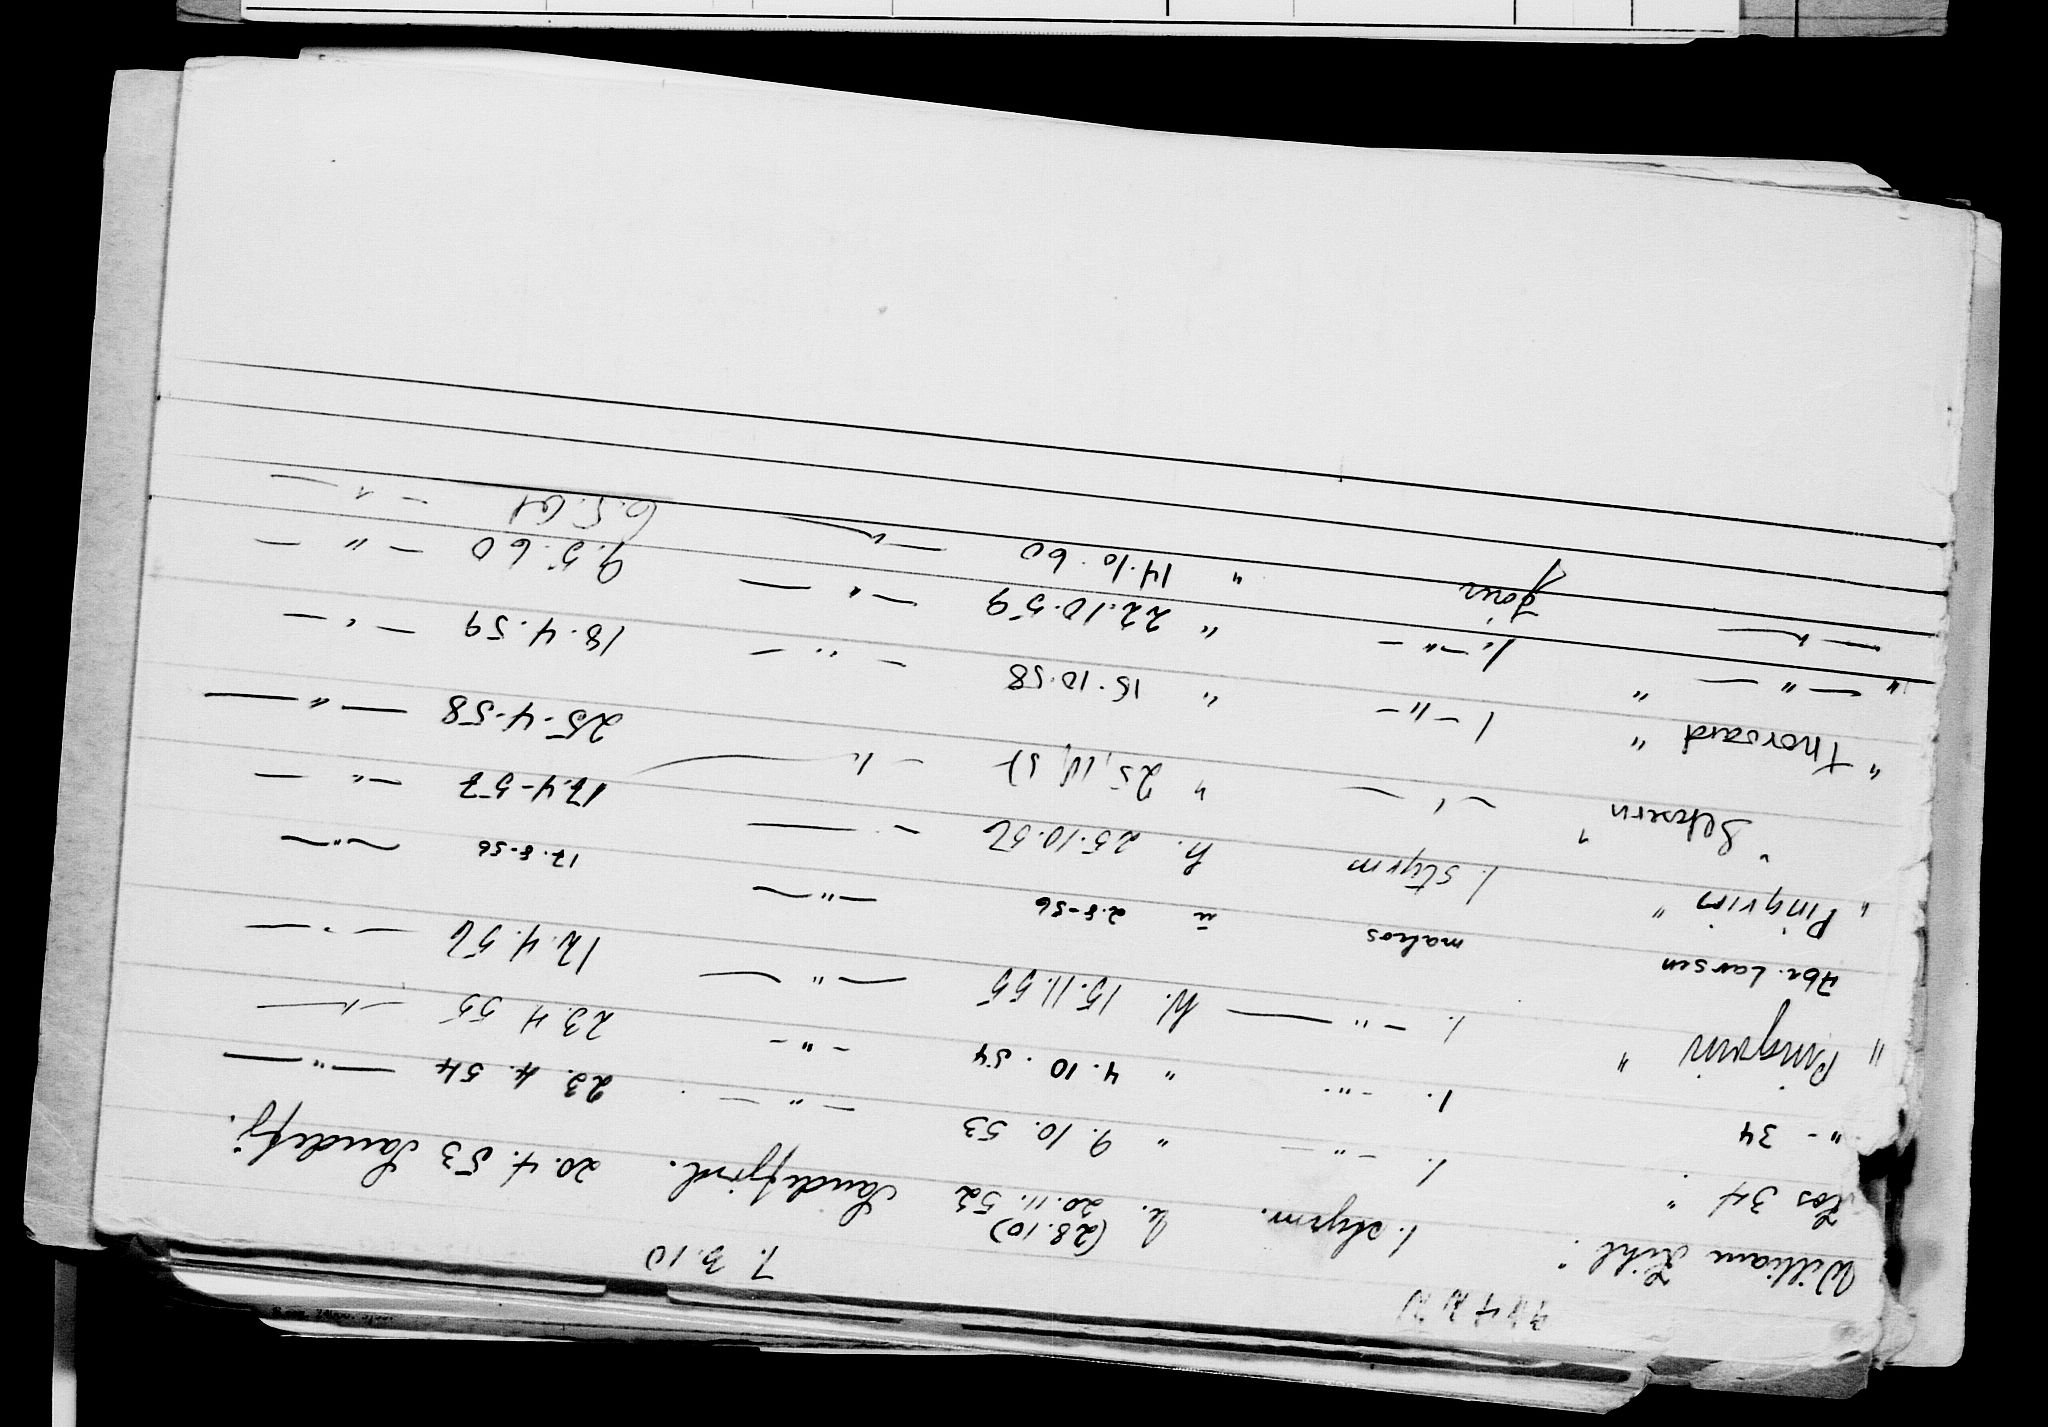 7. 3. 10
William Kihl. " 1. styrm. h. (28.10) 20.11.52 Sandefjord. 20.4.53 Sandefj.
Kos 34 " 1. – " – " 9.10.53 – " – 23.4.54 – " –
" – 34 1. – " – " 4.10.54 – " – 23.4.55 – " –
" Pingvin " 1. – " – h. 15.11.55 – " – 12.4.56 – " –
Abr. Larsen matros u 2.8-56 – " – 17.8-56 – " –
" Pingvin " 1. styrm h. 25.10.56 – " – 17.4-57 – " –
" " – " – " 25,10,57 – " – 25-4-58 – " –
" Thorvard " 1 – " – " 15.10.58 – " – 18.4.59 – " –
" – " – " 1. – " – " 22.10.59 – " – 9.5.60 – " –
" – " – " 14.10.60 – " – 6.5.61 – " –